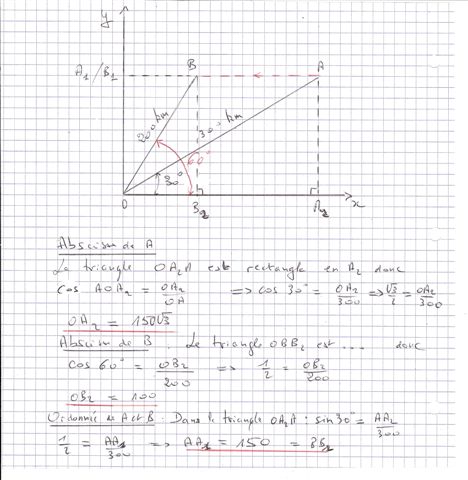 y
A₁/B₁
B
A
200 km
300 km
60°
30°
O
B₂
A₂
x
Abscisse de A
Le triangle OA₂A est rectangle en A₂ donc
cos AOA₂ = OA₂/OA ⟹ cos 30° = OA₂/300 ⟹ √3/2 = OA₂/300
OA₂ = 150√3
Abscisse de B. Le triangle OBB₂ est ... donc
cos 60° = OB₂/200 ⟹ 1/2 = OB₂/200
OB₂ = 100
Ordonnée de A et B. Dans le triangle OA₂A : sin 30° = AA₂/300
1/2 = AA₂/300 ⟹ AA₂ = 150 = BB₂